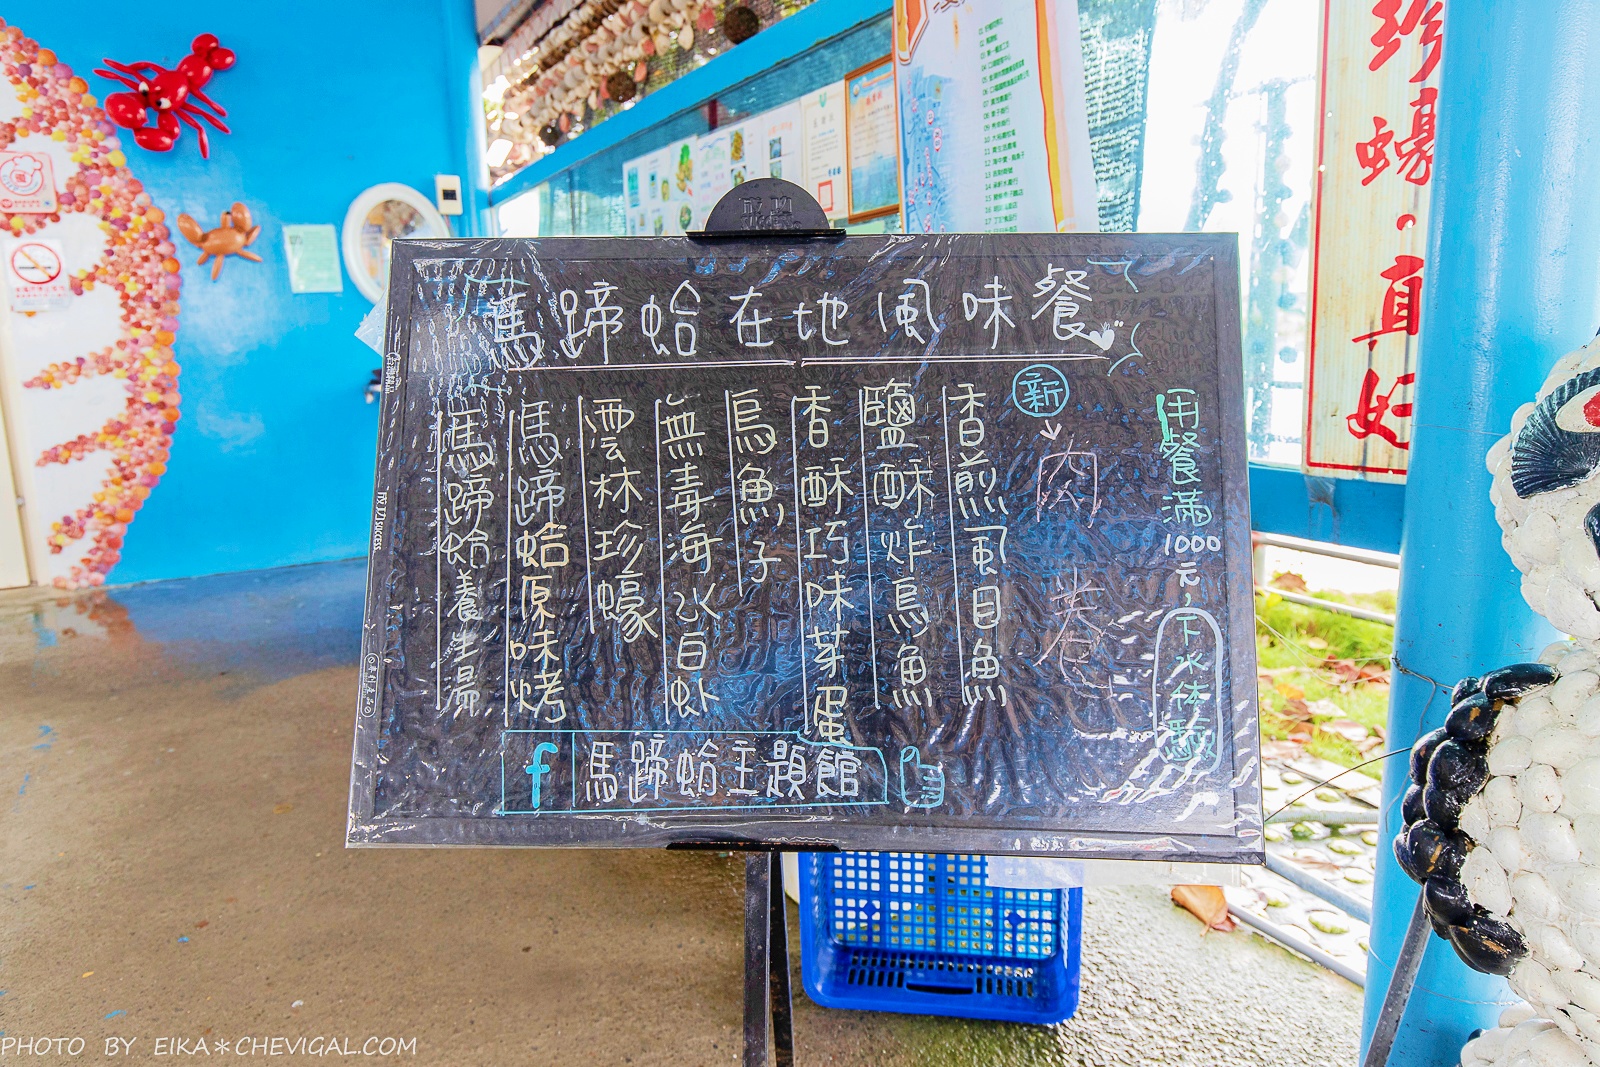 馬蹄蛤在地風味餐
用餐滿1000元,下水体驗
新
肉卷
香煎風目魚
鹽酥炸烏魚
香酥巧味芽蛋
烏魚子
無毒海水白虾
雲林珍蠔
馬蹄蛤原味烤
馬蹄蛤養生湯
f 馬蹄蛤主題館
成功SUCCESS
珍蠔·真好
PHOTO BY EIKA＊CHEVIGAL.COM